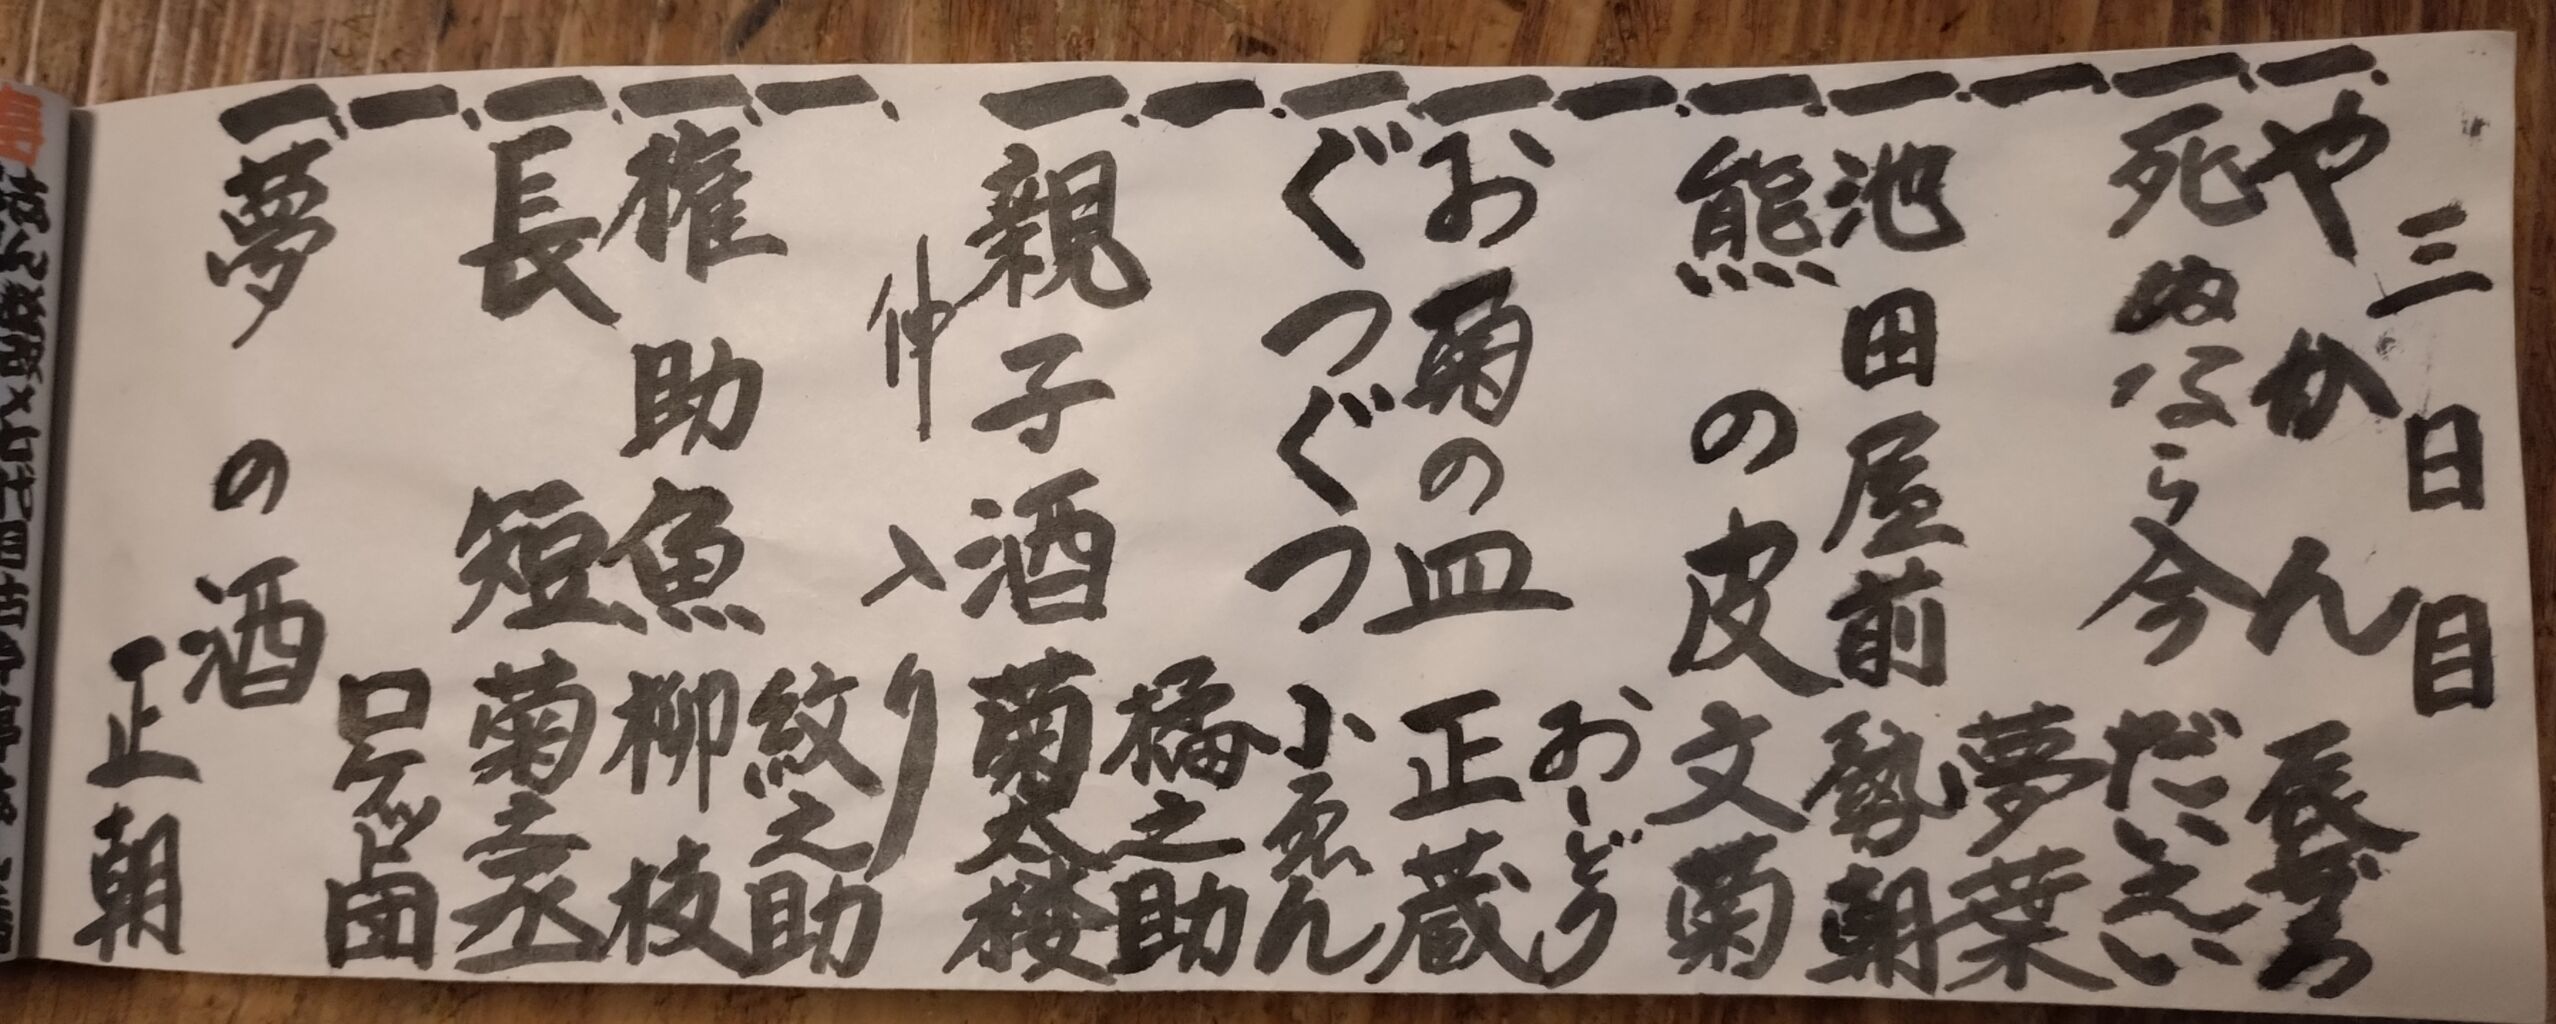 三日目
一、やかん 辰ぢろ
一、死ぬなら今 だいえい
一、夢葉
一、池田屋前 勢朝
一、熊の皮 文菊
一、おしどり
一、お菊の皿 正蔵
一、ぐつぐつ 小ゑん
一、橘之助
一、親子酒 菊太楼
仲入り
一、紋之助
一、権助魚 柳枝
一、長短 菊志ん
一、ロケット団
一、夢の酒 正朝